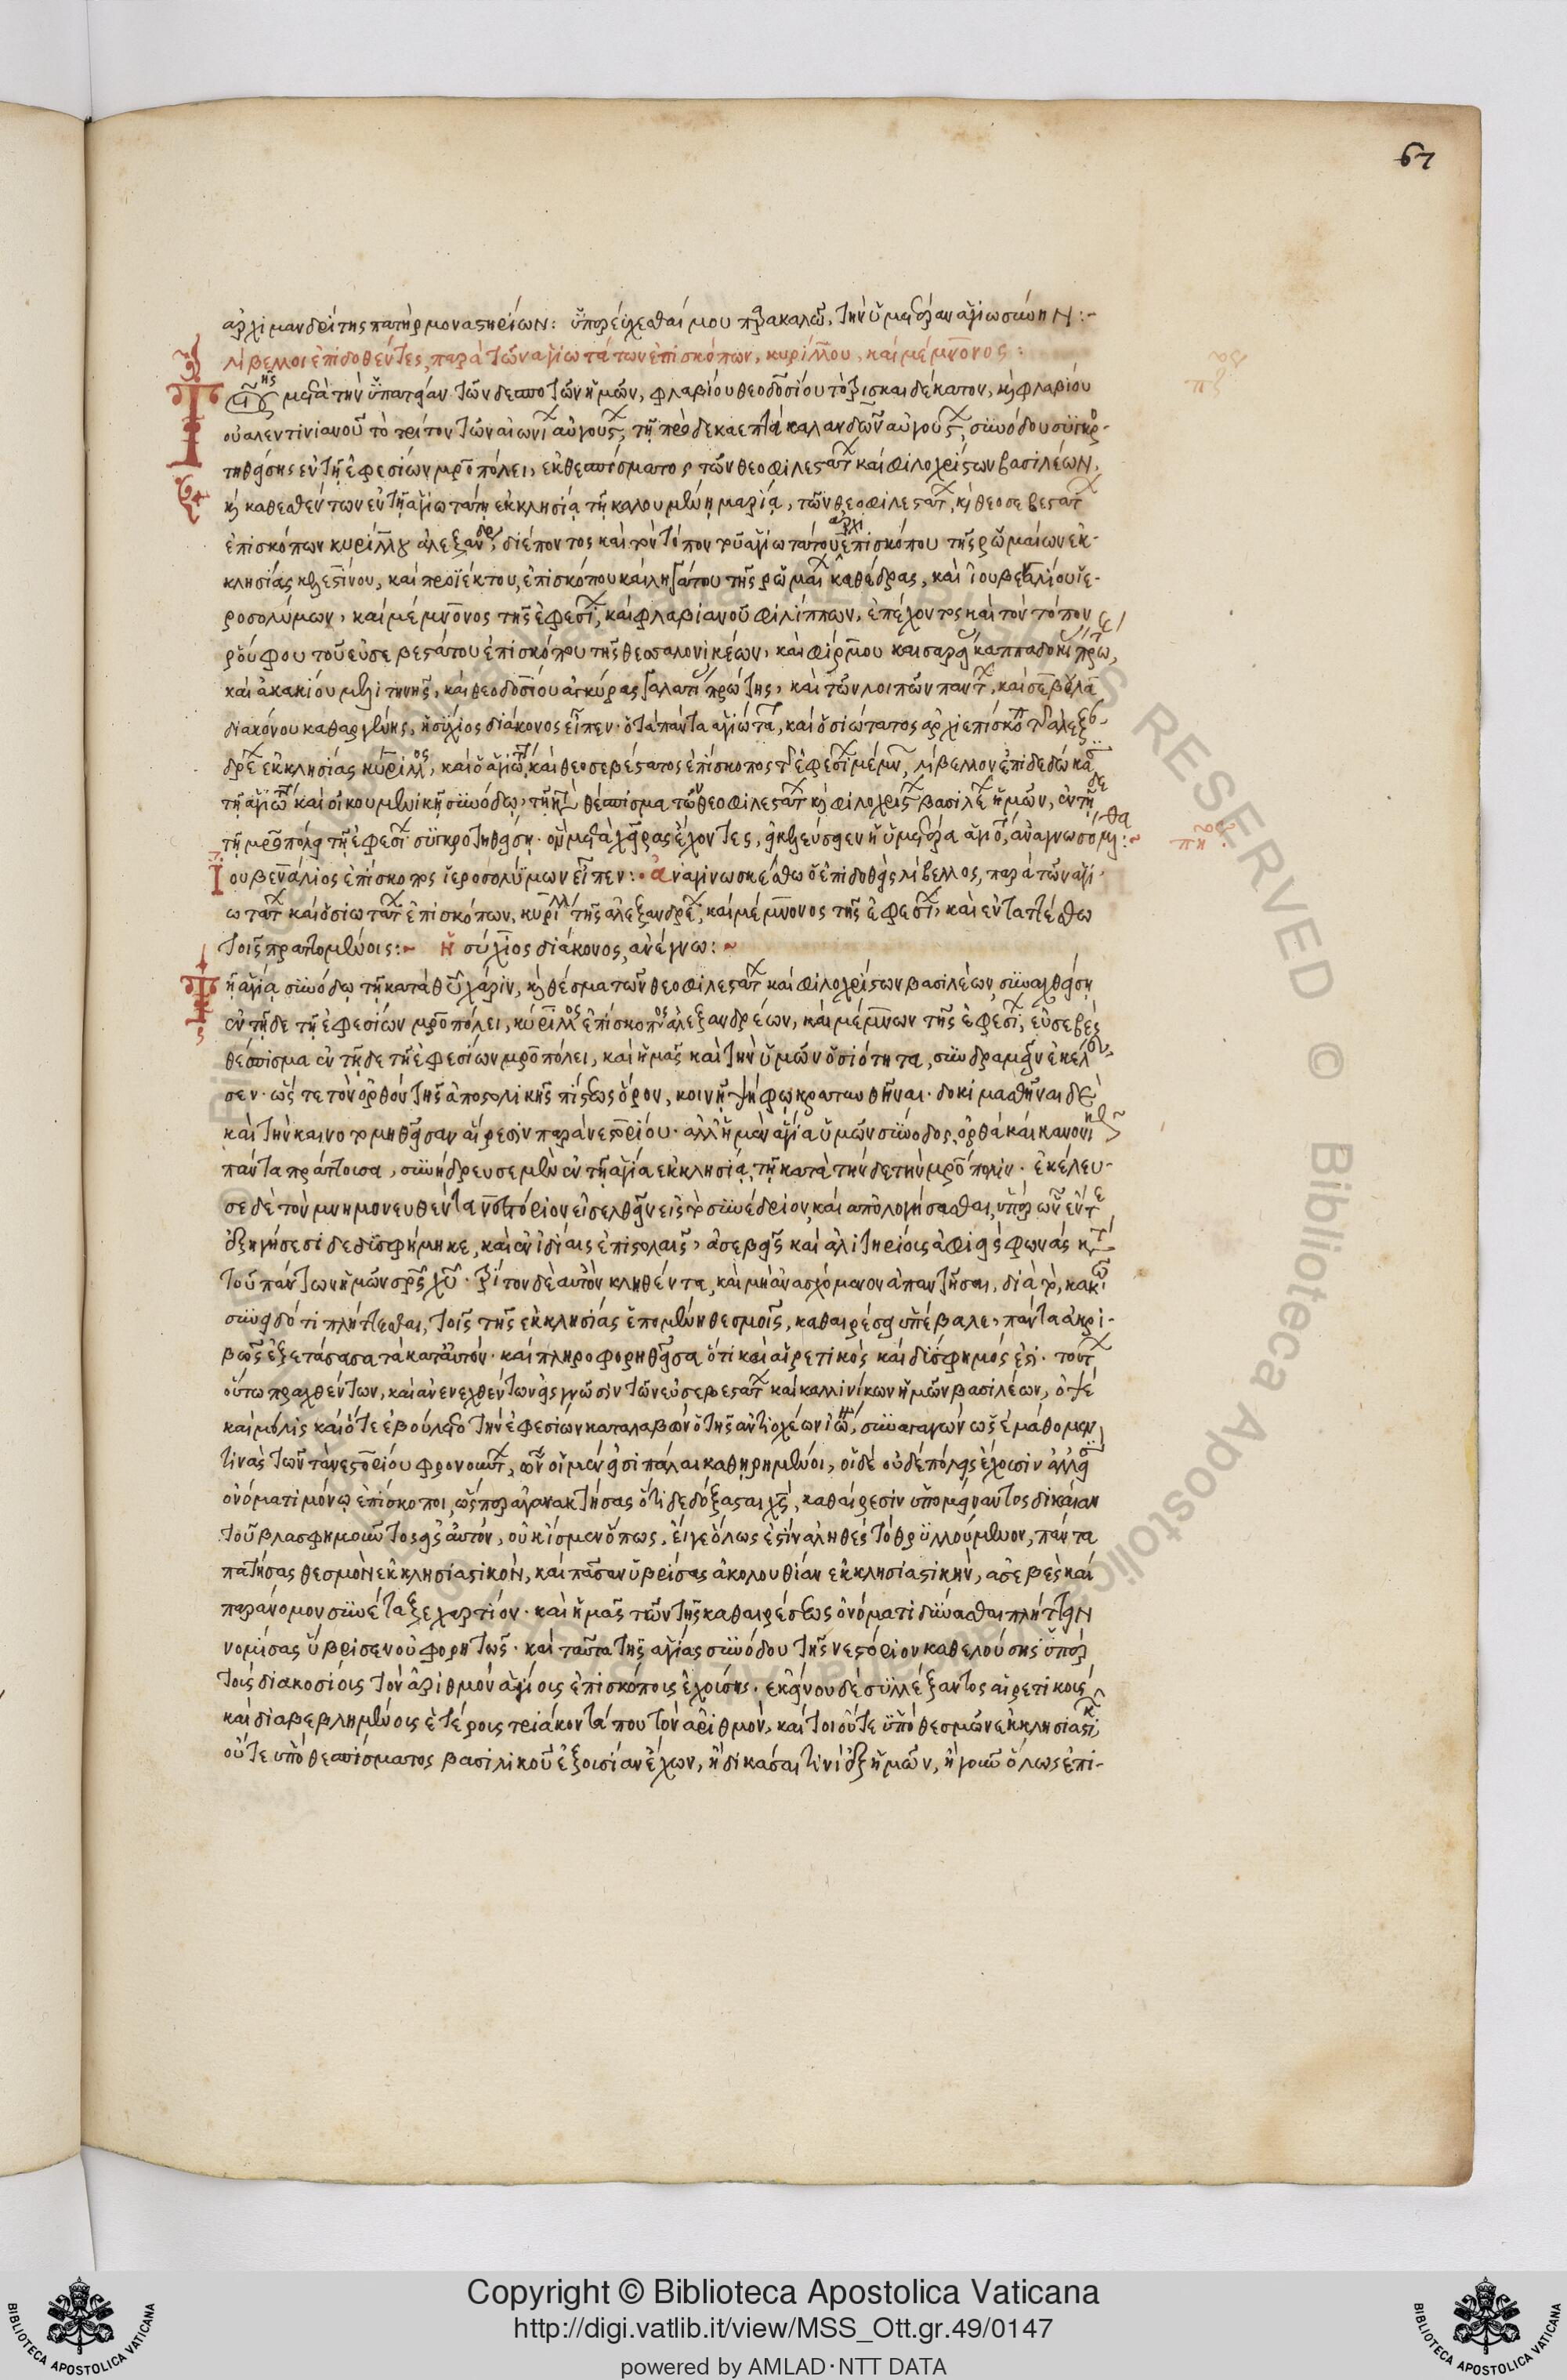 67
ἀρχιμανδρίτης πατὴρ μοναστηρίων: ὑπερεύχεσθαί μου παρακαλῶ, τὴν ὑμετέραν ἁγιωσύνην:-
λίβελλοι ἐπιδοθέντες, παρὰ τῶν ἁγιωτάτων ἐπισκόπων, κυρίλλου, καὶ μέμνονος:
τοῖς μετὰ τὴν ὑπατείαν τῶν δεσποτῶν ἡμῶν, φλαβίου θεοδοσίου τὸ τρισκαιδέκατον, κỳ φλαβίου
οὐαλεντινιανοῦ τὸ τρίτον τῶν αἰωνί αὐγούς, τῇ πρὸ δεκαεπτὰ καλανδῶν αὐγούς, συνόδου συγκρο-
τηθείσης ἐν τῇ ἐφεσίων μρόπόλει, ἐκ θεσπίσματος τῶν θεοφιλεστάτ καὶ φιλοχρίστων βασιλέων,
κỳ καθεσθέντων ἐν τῇ ἁγιωτάτῃ ἐκκλησίᾳ τῇ καλουμένῃ μαρίᾳ, τῶν θεοφιλεστάτ, κỳ θεοσεβεστάτ
ἐπισκόπων κυρίλλου ἀλεξανδρ, διέποντος καὶ τὸν τόπον τοῦ ἁγιωτάτου ἀρχιεπισκόπου τῆς ῥωμαίων ἐκ-
κλησίας κελεστίνου, καὶ προϊέκτου, ἐπισκόπου καὶ ληγάτου τῆς ῥωμαί καθέδρας, καὶ ἰουβεναλίου ἱε-
ροσολύμων, καὶ μέμνονος τῆς ἐφεσί, καὶ φλαβιανοῦ φιλίππων, ἐπέχοντος καὶ τὸν τόπον
ῥούφου τοῦ εὐσεβεστάτου ἐπισκόπου τῆς θεσσαλονικέων, καὶ φίρμου καισαρεί καππαδοκί πρώ,
καὶ ἀκακίου μελιτηνῆς, καὶ θεοδοσίου ἀγκύρας γαλατί πρώτης, καὶ τῶν λοιπῶν παντ, καὶ σε βεσουλᾶ
διακόνου καθαργένης, ἡσύχιος διάκονος εἶπεν· ὁ τὰ πάντα ἁγιώτα, καὶ ὁσιώτατος ἀρχιεπίσκοπ τῆς ἀλεξαν-
δρέ ἐκκλησίας κύριλλος, καὶ ὁ ἁγιώτ, καὶ θεοσεβέστατος ἐπίσκοπος τῆς ἐφεσί μέμν, λίβελλον ἐπιδεδώκασι
τῇ ἁγιωτ καὶ οἰκουμενικῇ συνόδῳ, τῇ κατὰ θέσπισμα τῶν θεοφιλεστάτ κỳ φιλοχρίστ βασιλέ ἡμῶν, ἐν τῇδε
τῇ μροπόλει τῇ ἐφεσί συγκροτηθείσῃ· ὃν μετὰ χεῖρας ἔχοντες, εἰ κελεύσειεν ἡ ὑμετέρα ἁγιό, ἀναγνωσόμεθα:~
ἰουβενάλιος ἐπίσκοπος ἱεροσολύμων εἶπεν:· ἀναγινωσκέσθω ὁ ἐπιδοθεὶς λίβελλος, παρὰ τῶν ἁγι-
ωτάτ καὶ ὁσιωτάτ ἐπισκόπων, κυρίλλ τῆς ἀλεξανδρέ, καὶ μέμνονος τῆς ἐφεσί, καὶ ἐνταττέσθω
τοῖς πραττομένοις:~ ἡσύχιος διάκονος, ἀνέγνω:~
τῇ ἁγίᾳ συνόδῳ τῇ κατὰ θῦ χάριν, κỳ θέσμα τῶν θεοφιλεστάτ καὶ φιλοχρίστων βασιλέων, συναχθείσῃ
ἐν τῇδε τῇ ἐφεσίων μροπόλει, κύριλλος ἐπίσκοπος ἀλεξανδρέων, καὶ μέμνων τῆς ἐφεσί, εὐσεβὲς
θέσπισμα ἐν τῇδε τῇ ἐφεσίων μροπόλει, καὶ ἡμᾶς καὶ τὴν ὑμῶν ὁσιότητα, συνδραμεῖν ἐκέλευ-
σεν· ὥστε τὸν ὀρθὸν τῆς ἀποστολικῆς πίστεως ὅρον, κοινῇ ψήφῳ κρατυνθῆναι· δοκιμασθῆναι δὲ
καὶ τὴν καινοτομηθεῖσαν αἵρεσιν παρὰ νεστορίου· ἀλλ' ἡ μὲν ἁγία ὑμῶν σύνοδος, ὀρθὰ καὶ κανονικῶς
πάντα πράττουσα, συνήδρευσε μὲν ἐν τῇ ἁγίᾳ ἐκκλησίᾳ, τῇ κατὰ τήνδε τὴν μρόπολιν· ἐκέλευ-
σε δὲ τὸν μνημονευθέντα νεστόριον εἰσελθεῖν εἰς τὸ συνέδριον, καὶ ἀπολογήσασθαι, ὑπὲρ ὧν ἔν τε
ἐξηγήσεσι δεδυσφήμηκε, καὶ ἐν ἰδίαις ἐπιστολαῖς, ἀσεβεῖς καὶ ἀλιτηρίοις ἀφιεὶς φωνὰς κατὰ
τοῦ πάντων ἡμῶν σρς χῦ· τρίτον δὲ αὐτὸν κληθέντα, καὶ μὴ ἀνασχόμενον ἀπαντῆσαι, διὰ τὸ, κακῷ
συνειδότι πλήττεσθαι, τοῖς τῆς ἐκκλησίας ἑπομένη θεσμοῖς, καθαιρέσει ὑπέβαλε, πάντα ἀκρι-
βῶς ἐξετάσασα τὰ κατ' αὐτόν· καὶ πληροφορηθεῖσα ὅτι καὶ αἱρετικὸς καὶ δύσφημός ἐστι· τούτ
οὕτω πραχθέντων, καὶ ἀνενεχθέντων εἰς γνῶσιν τῶν εὐσεβεστάτ καὶ καλλινίκων ἡμῶν βασιλέων, ὀψέ
καὶ μόλις καὶ ὅτε ἐβούλετο τὴν ἐφεσίων καταλαβὼν ὁ τῆς ἀντιοχέων ἰω, συναγαγὼν ὡς ἐμάθομεν
τινὰς τῶν τὰ νεστορίου φρονούντ, ὧν οἱ μὲν εἰσὶ πάλαι καθῃρημένοι, οἱ δὲ οὐδὲ πόλεις ἔχουσιν ἀλλ' ἢ
ὀνόματι μόνῳ ἐπίσκοποι, ὥσπερ ἀγανακτήσας ὅτι δεδόξασται χς, καθαίρεσιν ὑπομείναντος δικαίαν
τοῦ βλασφημοῦντος εἰς αὐτόν, οὐκ ἴσμεν ὅπως, εἴγε ὅλως ἐστὶν ἀληθὲς τὸ θρυλλούμενον, πάντα
πατήσας θεσμὸν ἐκκλησιαστικὸν, καὶ πᾶσαν ὑβρίσας ἀκολουθίαν ἐκκλησιαστικὴν, ἀσεβὲς καὶ
παράνομον συνέταξε χαρτίον· καὶ ἡμᾶς τῶν τῆς καθαιρέσεως ὀνόματι δύνασθαι πλήττειν
νομίσας ὕβρισεν οὐ φορητῶς· καὶ ταῦτα τῆς ἁγίας συνόδου τῆς νεστόριον καθελούσης ὑπὲρ
τοὺς διακοσίοις τὸν ἀριθμὸν ἁγίοις ἐπισκόποις ἐχούσης· ἐκείνου δὲ συλλέξαντος αἱρετικοὺς
καὶ διαβεβλημένοις ἑτέροις τριάκοντά που τὸν ἀριθμὸν, καίτοι οὔτε ὑπὸ θεσμῶν ἐκκλησιαστικ
οὔτε ὑπὸ θεσπίσματος βασιλικοῦ ἐξουσίαν ἔχων, ἢ δικάσαι τινὶ ἐξ ἡμῶν, ἤγουν ὅλως ἐπι-
Copyright © Biblioteca Apostolica Vaticana
http://digi.vatlib.it/view/MSS_Ott.gr.49/0147
powered by AMLAD·NTT DATA